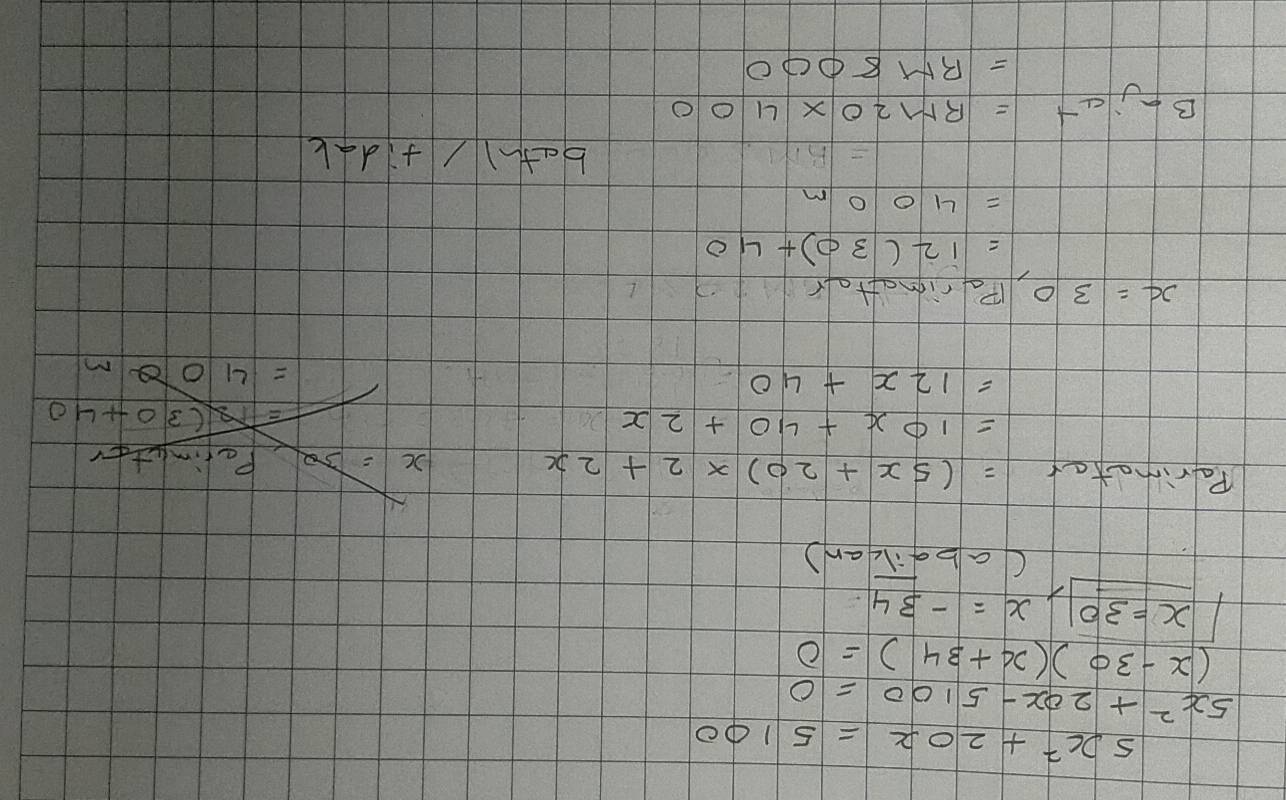 5x² + 20x = 5100
5x² + 20x - 5100 = 0
(x - 30)(x + 34) = 0
x = 30, x = -34
(abaikan)
Parimeter = (5x + 20) x 2 + 2x
= 10x + 40 + 2x
= 12x + 40
x = 30, Perimeter
= 12(30 + 40
= 400 m
x = 30, Parimeter
= 12(30) + 40
= 400 m
= RM
betul / tidak
Bajet = RM20 x 400
= RM 8000